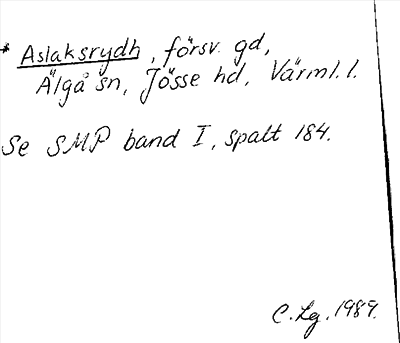 * Aslaksrydh, försv. gd,
Älgå sn, Jösse hd, Värml. l.
Se SMP band I, spalt 184.
C. Lg. 1989.